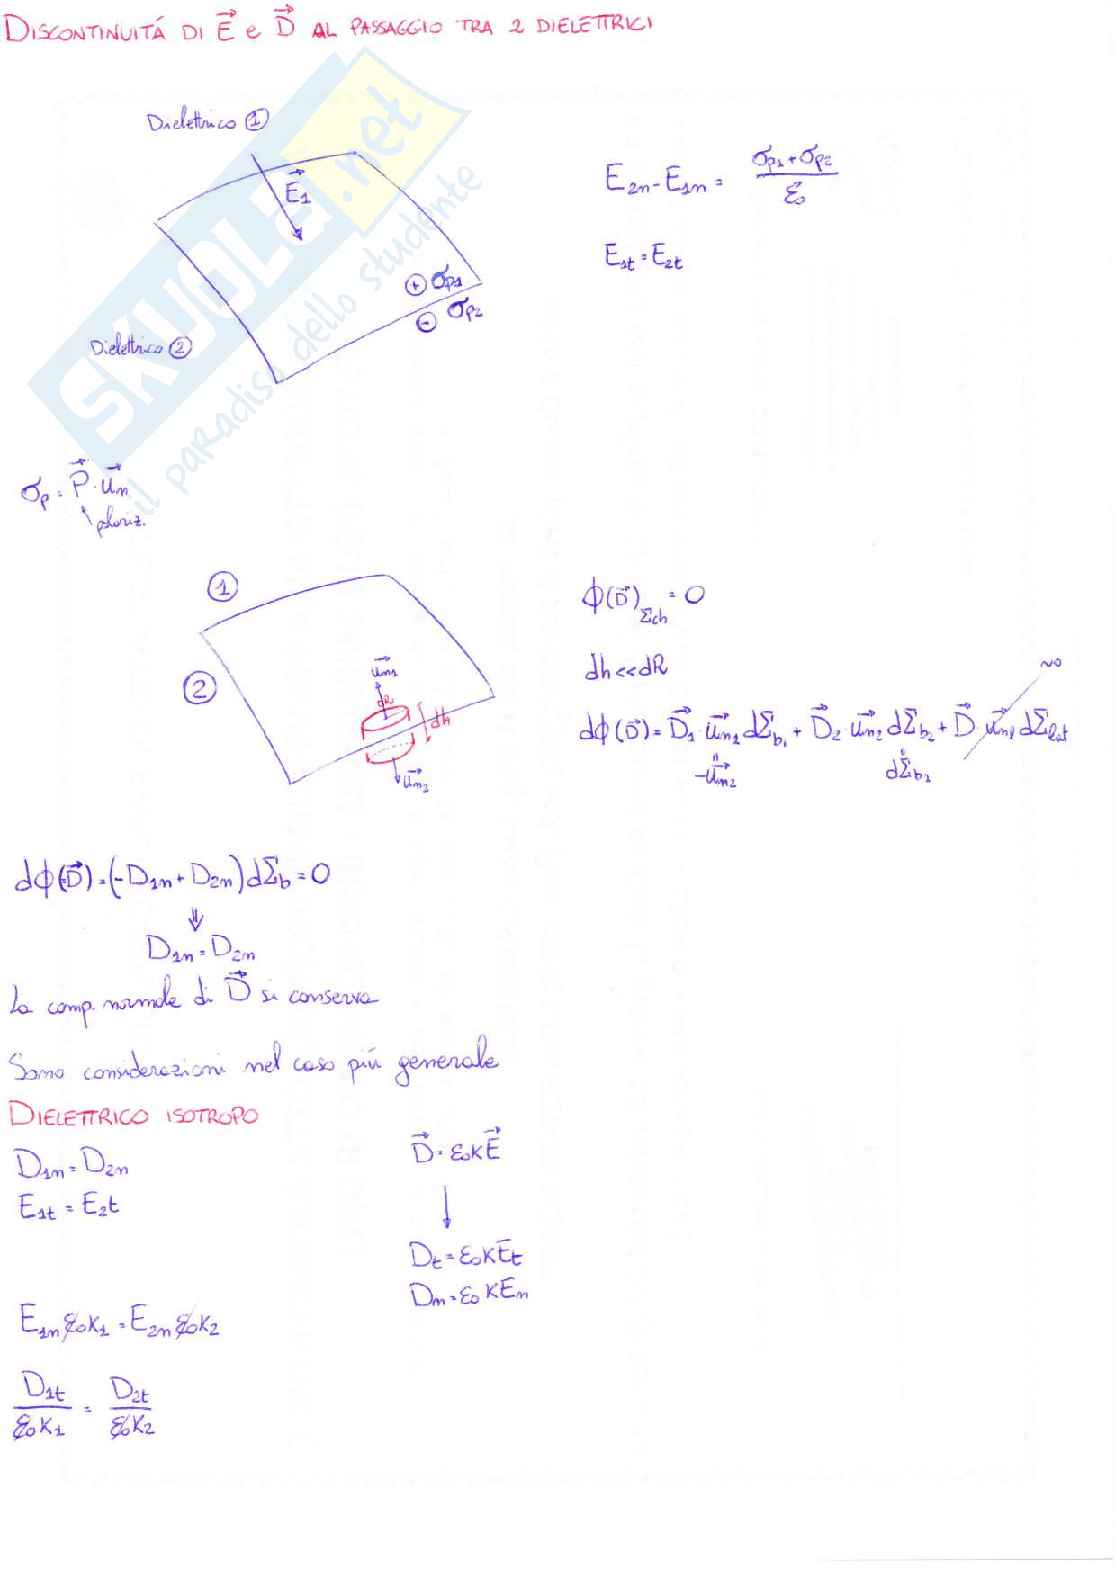 DISCONTINUITÁ DI E⃗ e D⃗ AL PASSAGGIO TRA 2 DIELETTRICI
Dielettrico ①
E⃗₁
⊕ σp1
⊖ σp2
Dielettrico ②
E2n - E1n = (σp1 + σp2)/ε₀
E1t = E2t
SKUOLA.net
il paradiso dello studente
σp = P⃗ · u⃗n
①
②
u⃗n1
dR
dh
u⃗n2
ϕ(D⃗)Σch = 0
dh << dR
NO
dϕ(D⃗) = D⃗1 · u⃗n1 dΣb1 + D⃗2 · u⃗n2 dΣb2 + D⃗ · u⃗nl dΣlat
-u⃗n2
dΣb1
dϕ(D⃗) = (-D1n + D2n) dΣb = 0
⇓
D1n = D2n
La comp. normale di D⃗ si conserva
Sono considerazioni nel caso più generale
DIELETTRICO ISOTROPO
D1n = D2n
E1t = E2t
D⃗ = ε₀KE⃗
↓
Dt = ε₀KEt
Dn = ε₀KEn
E1n ε₀K1 = E2n ε₀K2
D1t/ε₀K1 = D2t/ε₀K2